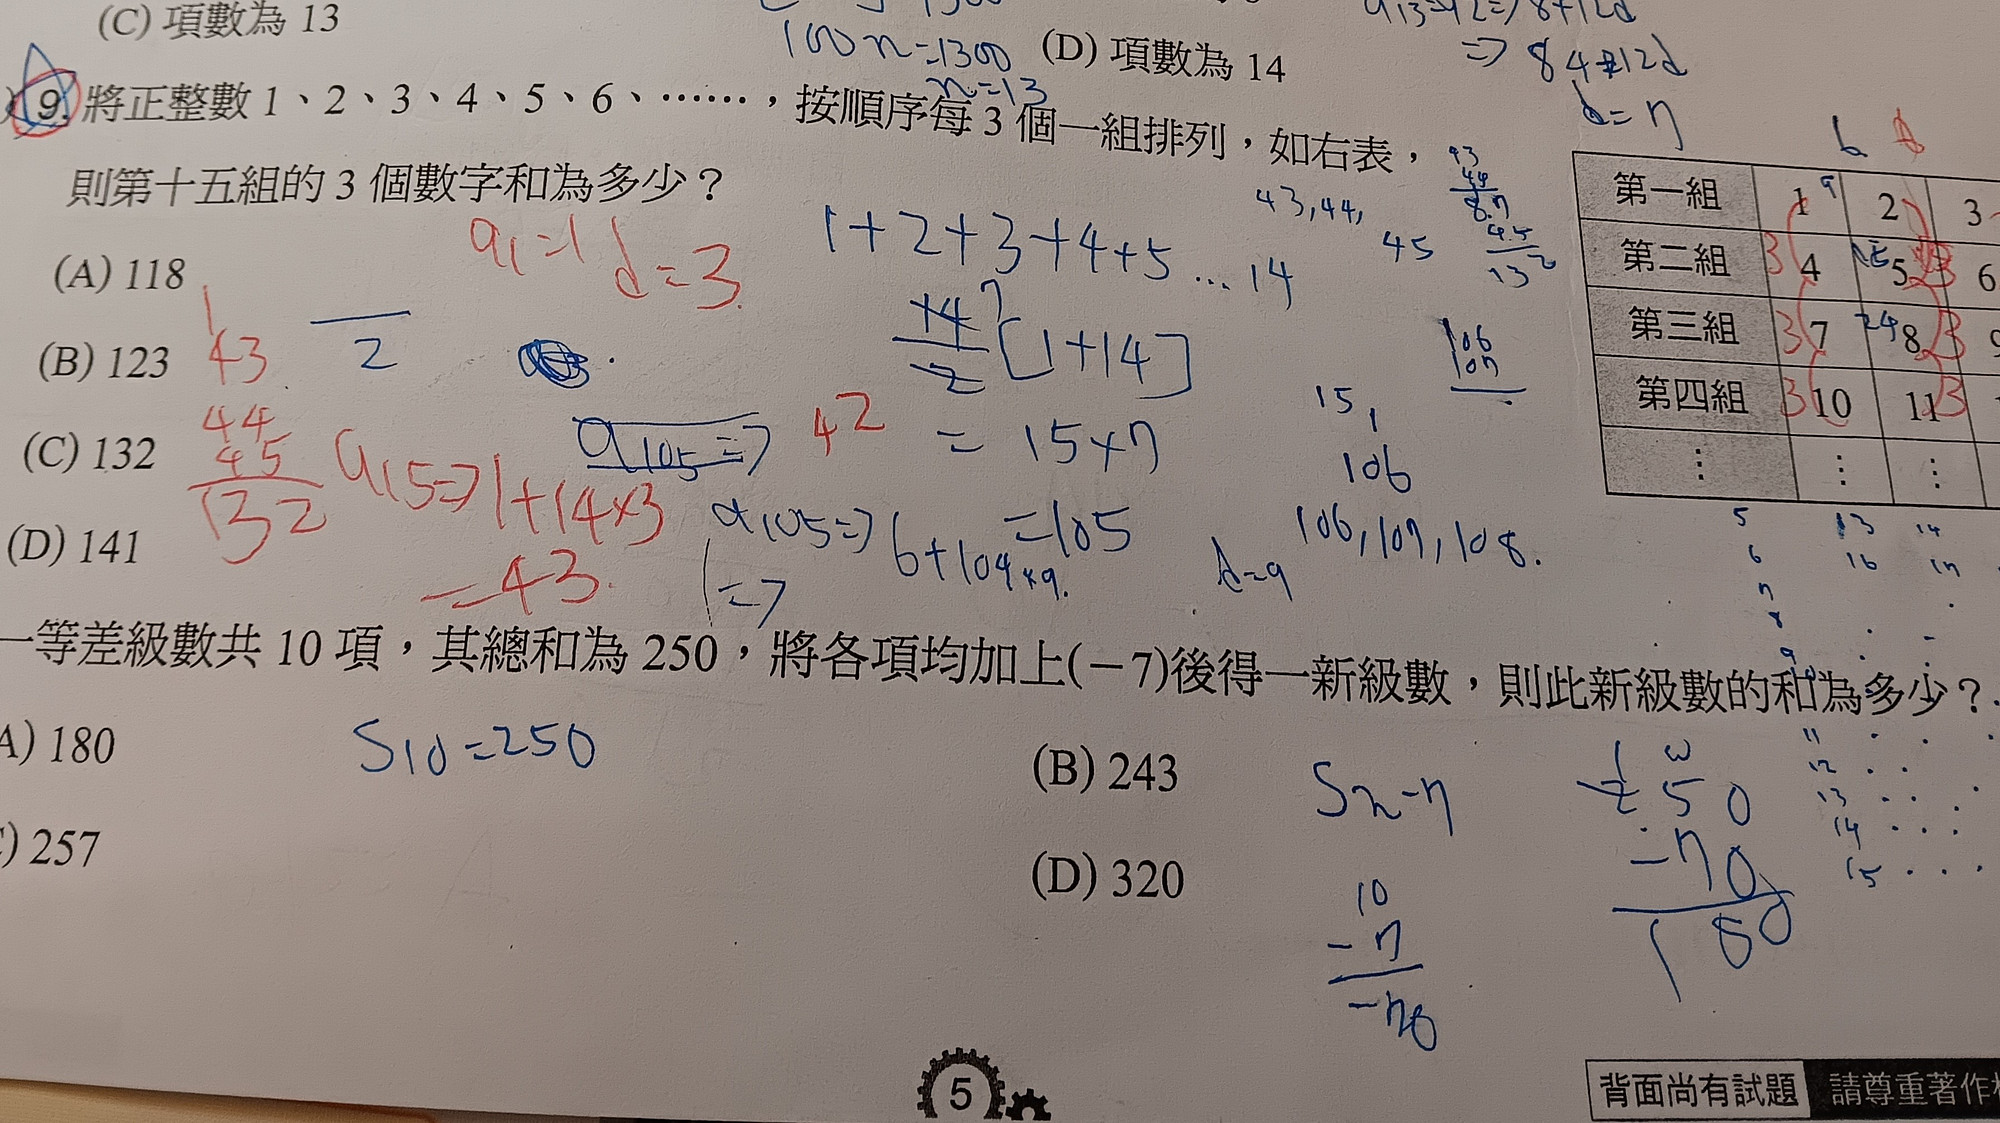 (C) 項數為 13
100n=1300
n=13
(D) 項數為 14
a13=92=>8+12d
=> 84=12d
d=7
9. 將正整數 1、2、3、4、5、6、……,按順序每 3 個一組排列,如右表,
則第十五組的 3 個數字和為多少?
第一組 1 2 3
第二組 4 5 6
第三組 7 8 9
第四組 10 11
⋮ ⋮ ⋮
(A) 118
(B) 123
(C) 132
(D) 141
a1=1 d=3
43
44
45
132
a15=>1+14×3
=43
42
1+2+3+4+5...14
14/2[1+14]
=15×7
=105
a105=>
a105=>6+104×9
d=9
43,44,
45
43
44
87
45
132
106
107
15,
106
106,107,108.
5 13 14
6 16 17
7
8
9
11
12
13
14
15
一等差級數共 10 項,其總和為 250,將各項均加上(-7)後得一新級數,則此新級數的和為多少?
A) 180
(B) 243
C) 257
(D) 320
S10=250
Sn-7
10
-7
-70
250
-70
180
5
背面尚有試題
請尊重著作